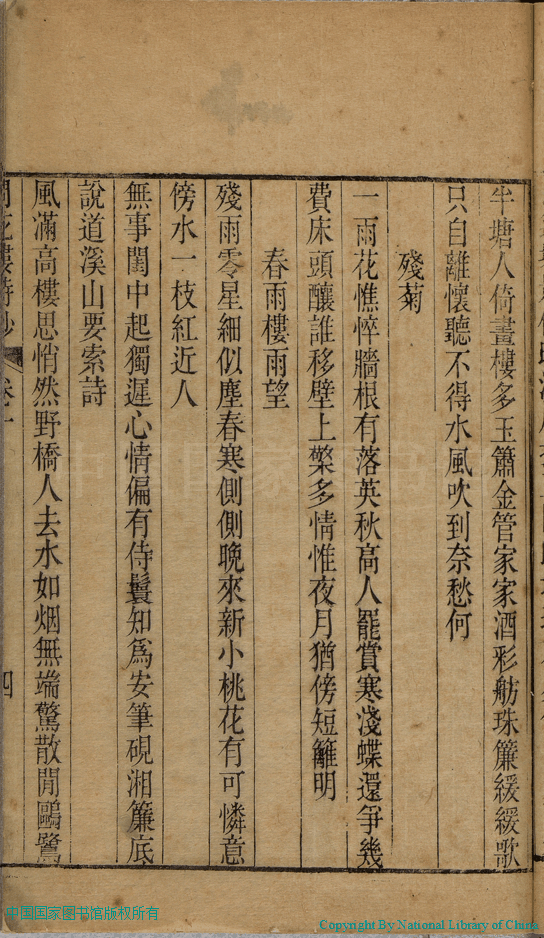 半塘人倚畫樓多玉簫金管家家酒彩舫珠簾緩緩歌
只自離懷聽不得水風吹到奈愁何
殘菊
一雨花憔悴牆根有落英秋高人罷賞寒淺蝶還爭幾
費床頭釀誰移壁上檠多情惟夜月猶傍短籬明
春雨樓雨望
殘雨零星細似塵春寒側側晚來新小桃花有可憐意
傍水一枝紅近人
無事閨中起獨遲心情偏有侍鬟知爲安筆硯湘簾底
說道溪山要索詩
風滿高樓思悄然野橋人去水如烟無端驚散閒鷗鷺
花樓詩鈔
卷一
四
中国国家图书馆版权所有
Copyright By National Library of China